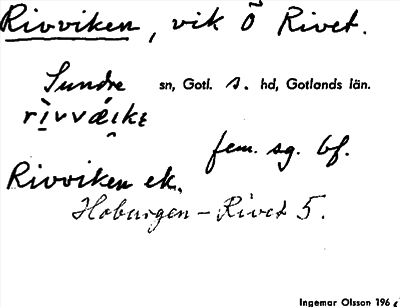 Rivviken, vik Ö Rivet.
Sundre sn, Gotl. S. hd, Gotlands län.
rìvvǽikɛ
fem. sg. bf.
Rivviken ek.
Hoburgen – Rivet 5.
Ingemar Olsson 196